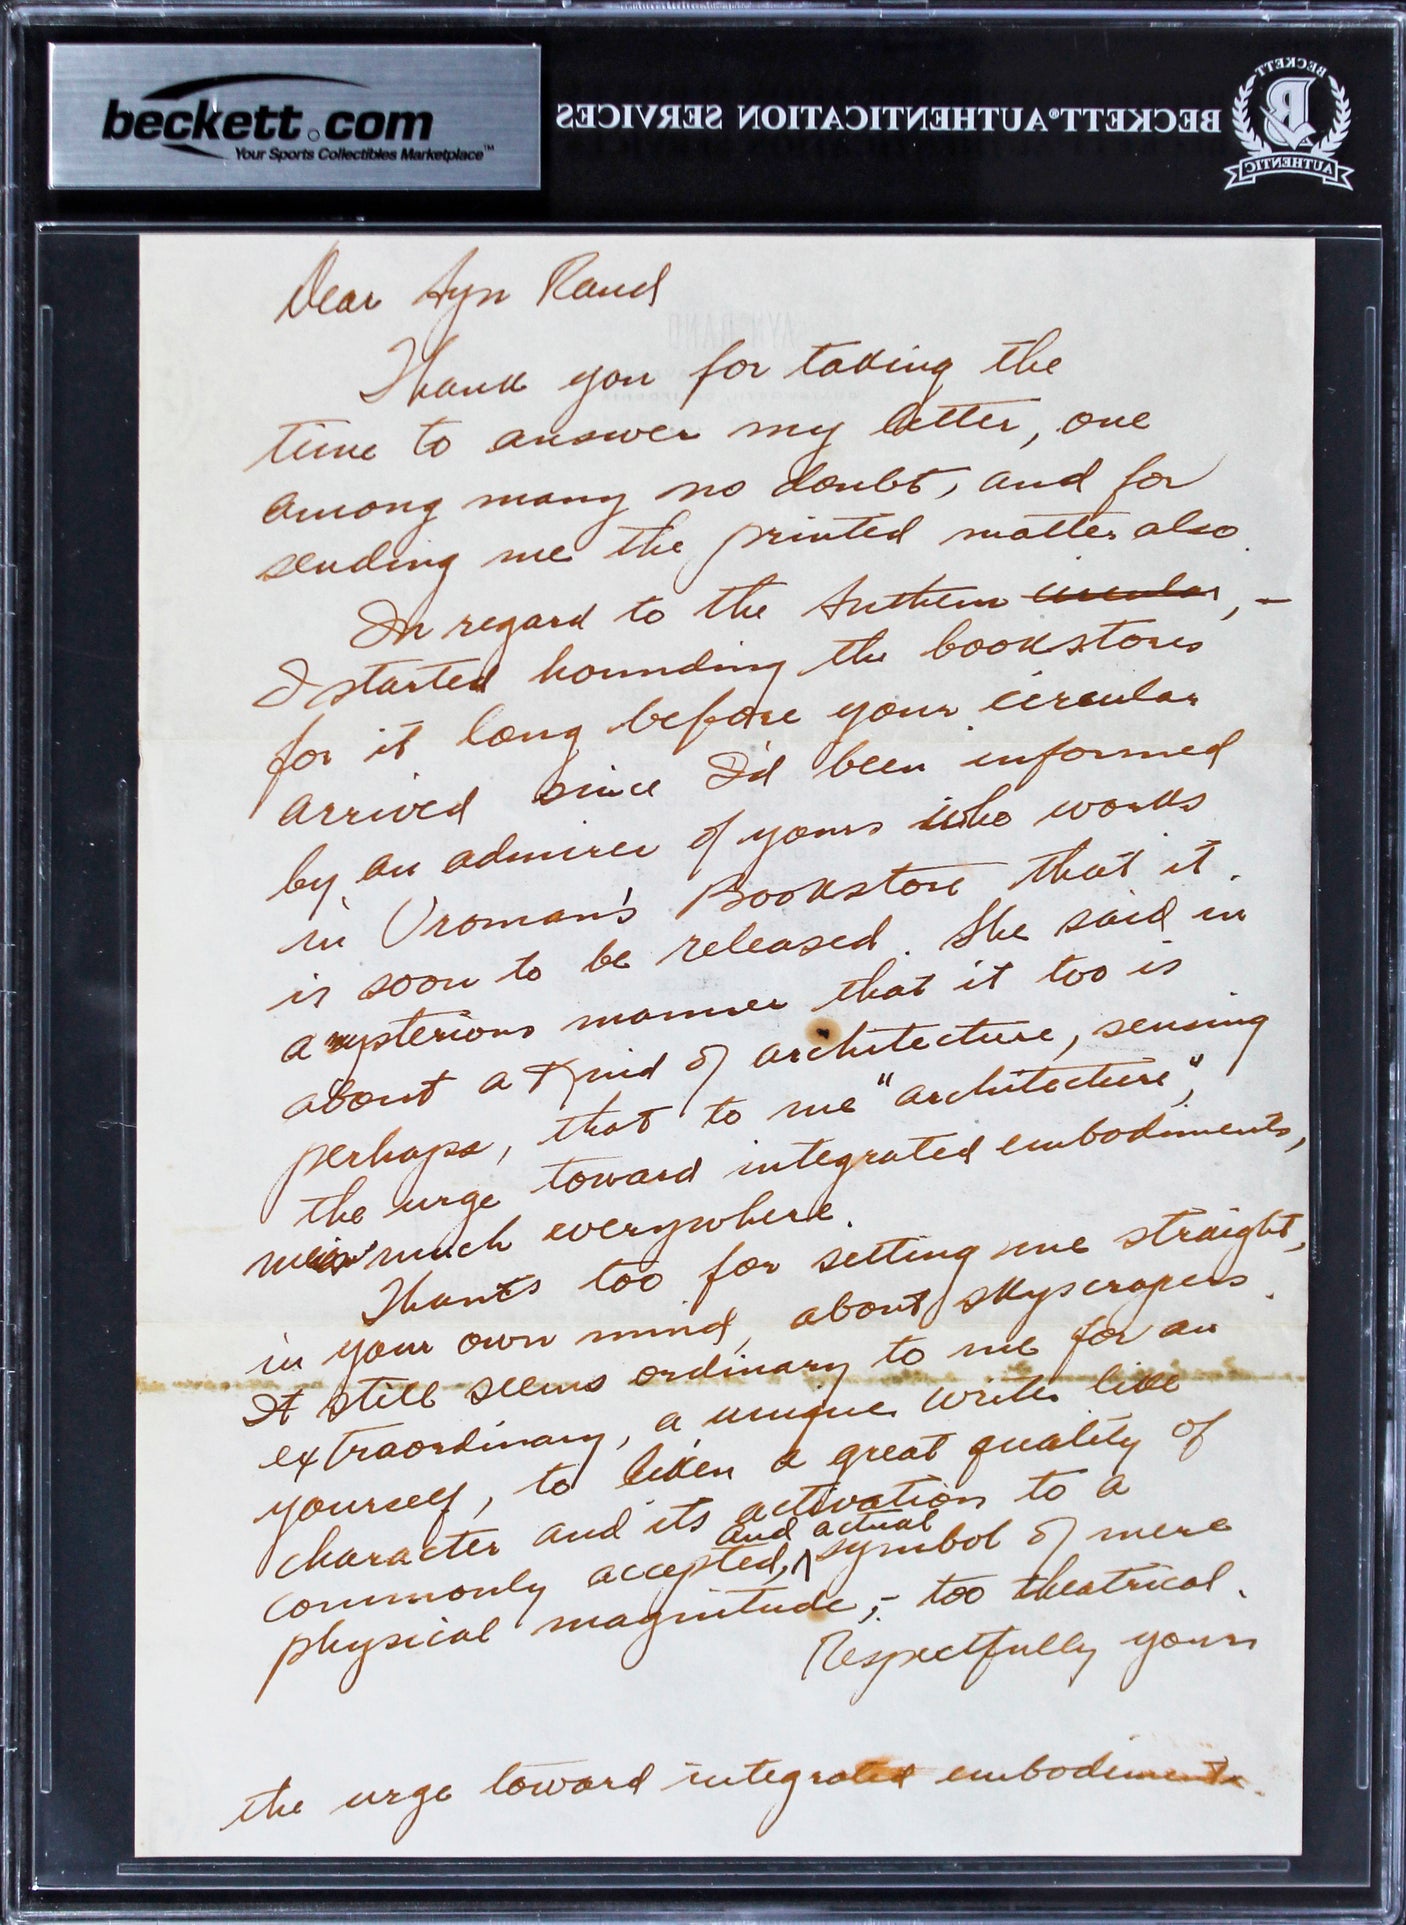 beckett.com
Your Sports Collectibles Marketplace™
BECKETT® AUTHENTICATION SERVICES
BECKETT
B
AUTHENTIC
AYN RAND
Dear Ayn Rand
Thank you for taking the
time to answer my letter, one
among many no doubt, and for
sending me the printed matter also.
In regard to the Anthem circular, –
I started hounding the bookstores
for it long before your circular
arrived since I'd been informed
by an admirer of yours who works
in Vroman's Bookstore that it
is soon to be released. She said in
a mysterious manner that it too is
about a kind of architecture, sensing
perhaps, that to me "architecture",
the urge toward integrated embodiments,
much everywhere.
Thanks too for setting me straight,
in your own mind, about skyscrapers.
It still seems ordinary to me for an
extraordinary, a unique writer like
yourself, to liken a great quality of
character and its activation to a
and actual
commonly accepted, ^ symbol of mere
physical magnitude; – too theatrical.
Respectfully yours
the urge toward integrated embodiments.